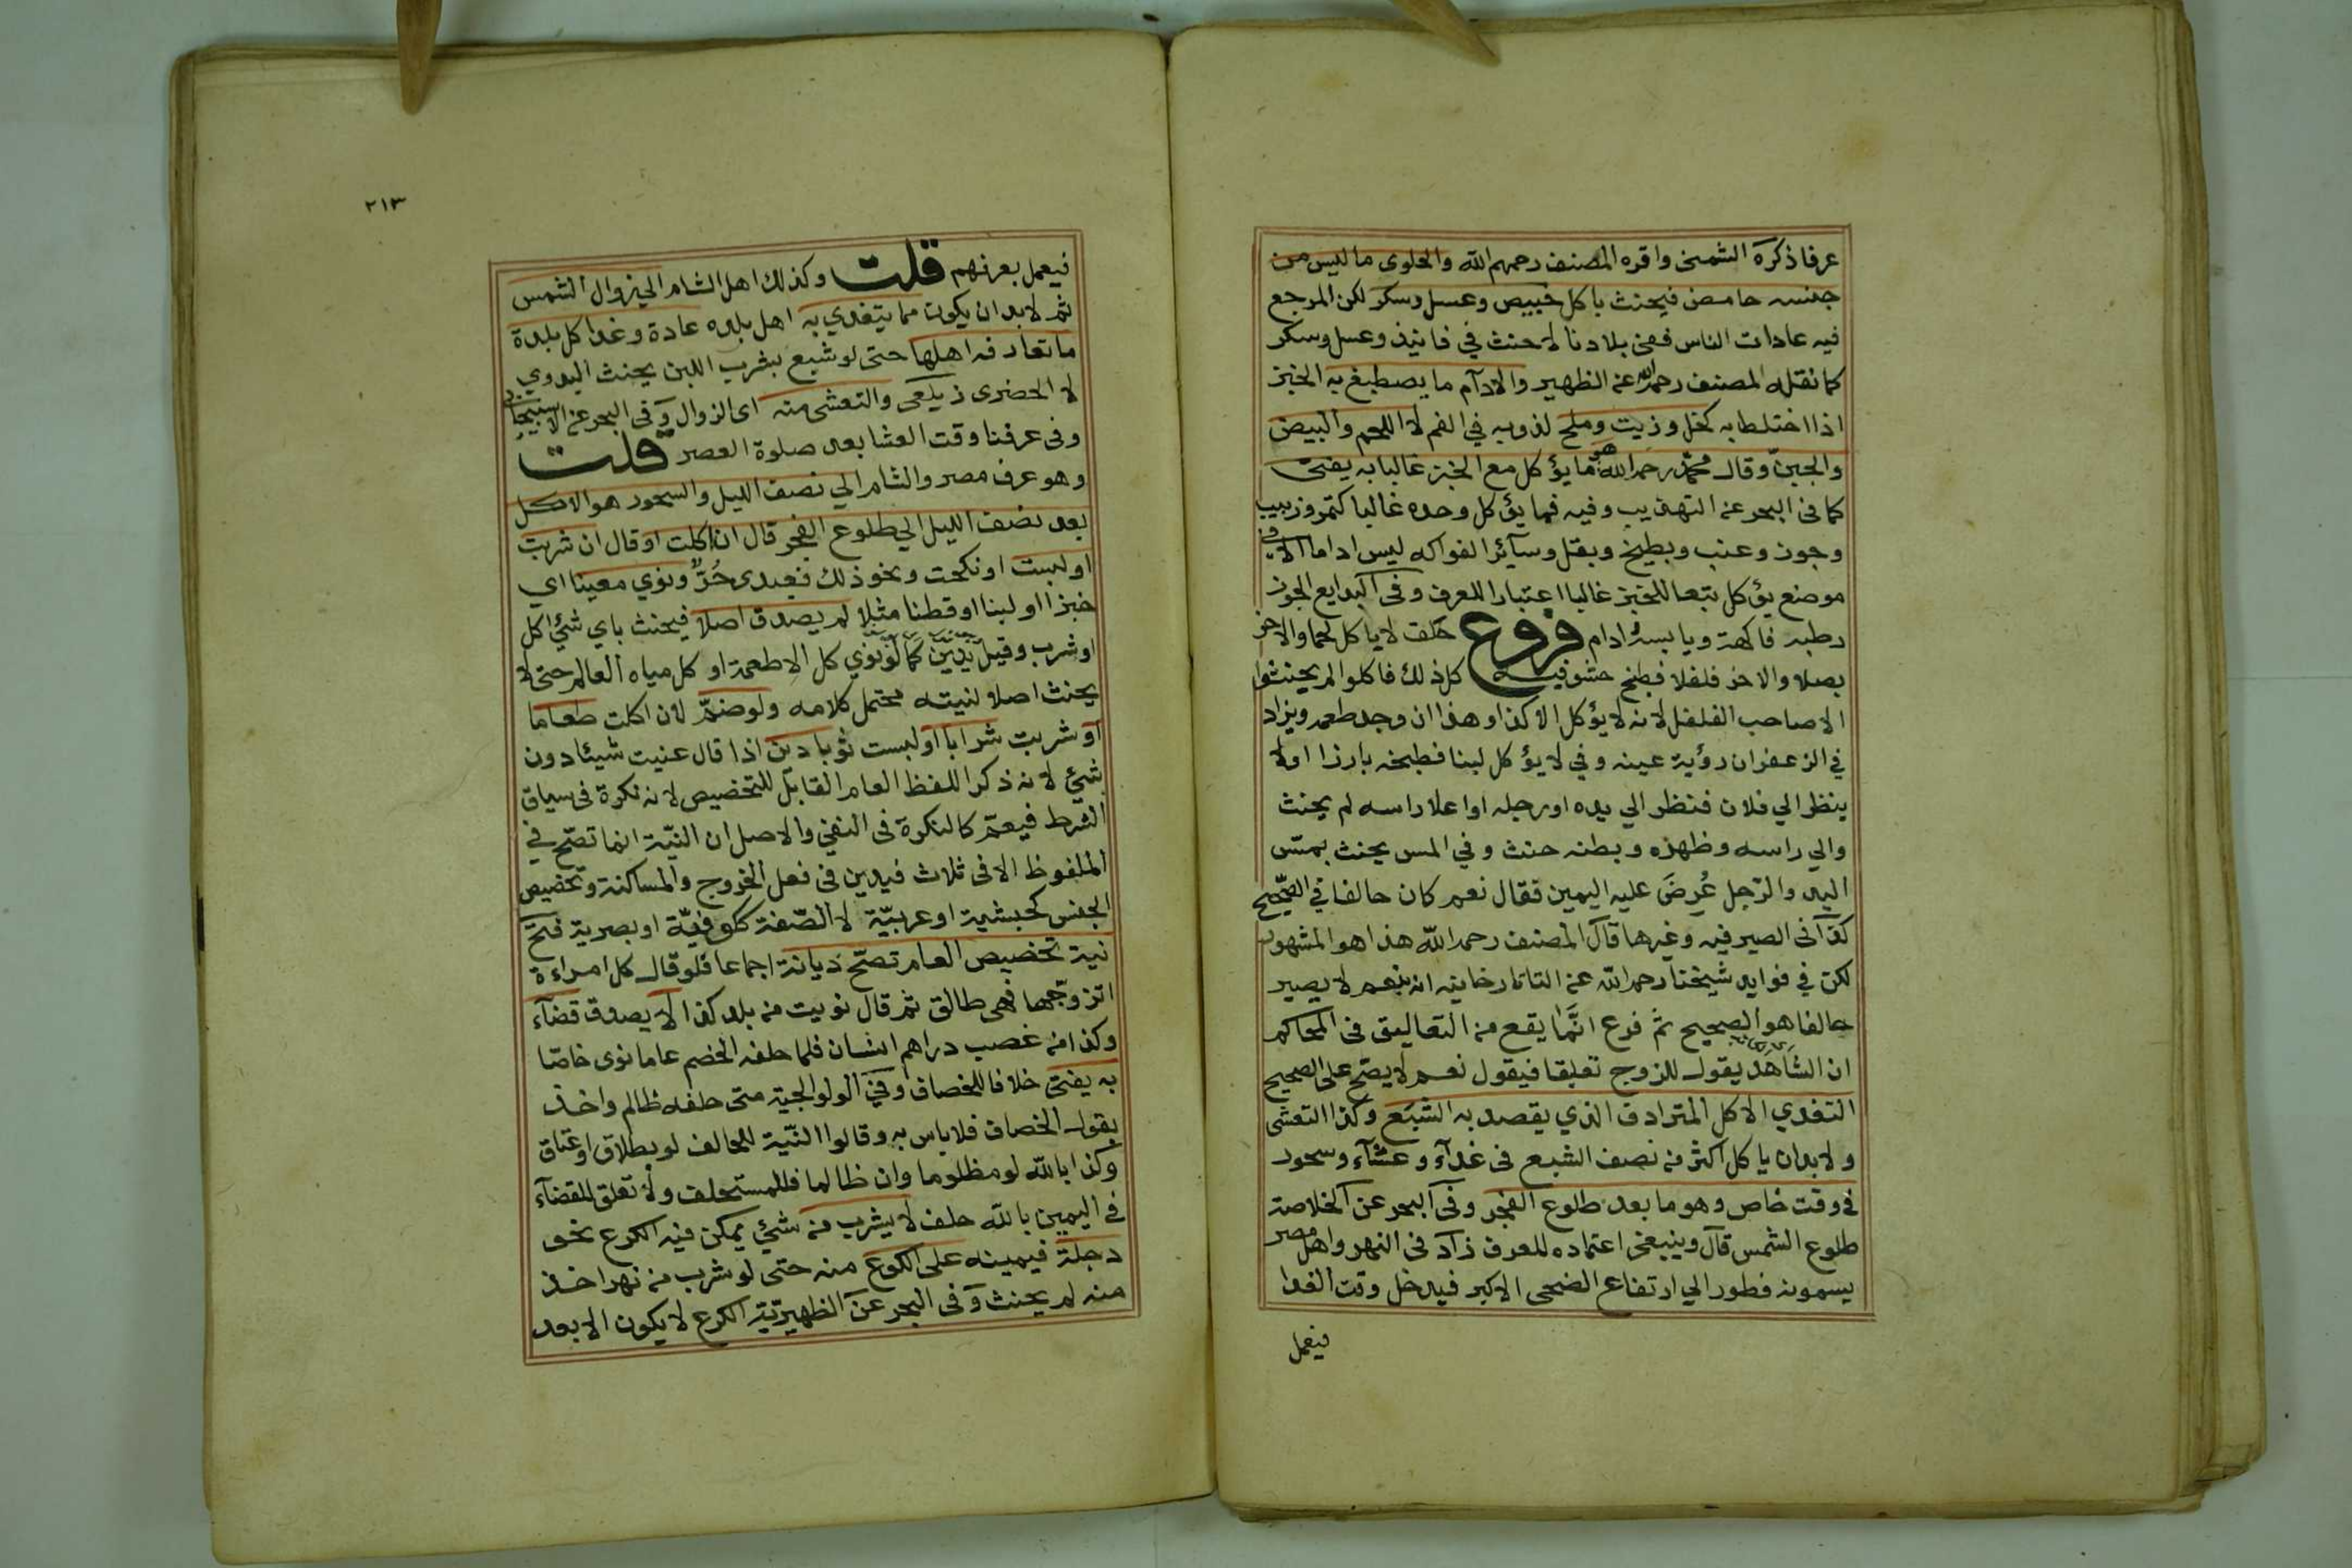 عرفا ذكره الشمنى واقره المصنف رحمهم الله والحلوى ما ليس من
جنسه حامض فيحنث باكل خبيص وعسل وسكر لكن المرجع
فيه عادات الناس ففى بلادنا لا حنث في فانيذ وعسل وسكر
كما نقله المصنف رحمه الله عن الظهير والادام ما يصطبغ به الخبز
اذا اختلط به كخل وزيت وملح لذوبه في الفم لا اللحم والبيض
والجبن وقال محمد رحمه الله هو ما يؤكل مع الخبز غالبا به يفتى
كما فى البحر عن التهذيب وفيه فما يؤكل وحده غالبا كتمر وزبيب
وجوز وعنب وبطيخ وبقل وسائر الفواكه ليس اداما الا في
موضع يؤكل تبعا للخبز غالبا اعتبارا للعرف وفى البدايع الجوز
رطبه فاكهة ويابسه ادام فروع حلف لا ياكل لحما والاخر
بصلا والاخر فلفلا فطبخ حشو فيه كل ذلك فاكلوا لم يحنثوا
الا صاحب الفلفل لانه لا يؤكل الا كذا وهذا ان وجد طعمه ويزاد
في الزعفران رؤية عينه وفي لا يؤكل لبنا فطبخه بارز اولا
ينظر الي فلان فنظر الي يده او رجله او اعلا راسه لم يحنث
والي راسه وظهره وبطنه حنث وفي المس يحنث بمسّ
اليد والرّجل عُرضَ عليه اليمين فقال نعم كان حالفا في الصّحيح
كذا فى الصيرفيه وغيرها قال المصنف رحمه الله هذا هو المشهور
لكن في فوايد شيخنا رحمه الله عن التاتارخانيه انه بنعم لا يصير
حالفا هو الصحيح ثم فرع انّما يقع من التعاليق فى المحاكم
ان الشاهد يقول للزوج تعليقا فيقول نعم لا يصّح على الصحيح
التغدي الاكل المترادف الذي يقصد به الشبع وكذا التعشى
ولا بد ان ياكل اكثر من نصف الشبع فى غدآء وعشآء وسحور
في وقت خاص وهو ما بعد طلوع الفجر وفى البحر عن الخلاصة
طلوع الشمس قال وينبغى اعتماده للعرف زاد فى النهر واهل مصر
يسمونه فطور الي ارتفاع الضحى الاكبر فيدخل وقت الغدا
فيعمل
٢١٣
فيعمل بعرفهم قلت وكذلك اهل الشام الي زوال الشمس
ثم لا بد ان يكون مما يتغدي به اهل بلده عادة وغدا كل بلدة
ما تعارفه اهلها حتى لو شبع بشرب اللبن يحنث البدوي
لا الحضرى زيلعى والتعشى منه اى الزوال وفى البحر عن الاسبيجابى
وفى عرفنا وقت العشا بعد صلوة العصر قلت
وهو عرف مصر والشام الي نصف الليل والسحور هو الاكل
بعد نصف الليل الي طلوع الفجر قال ان اكلت او قال ان شربت
او لبست او نكحت ونحو ذلك فعبدى حُرٌّ ونوي معينا اي
خبزا او لبنا او قطنا مثلا لم يصدق اصلا فيحنث باي شئ اكل
او شرب وقيل يدين كما لو نوي كل الاطعمة او كل مياه العالم حتى لا
يحنث اصلا لنيته محتمل كلامه ولو ضمّ لان اكلت طعاما
او شربت شرابا او لبست ثوبا دين اذا قال عنيت شيئا دون
شئ لانه ذكر اللفظ العام القابل للتخصيص لانه نكرة فى سياق
الشرط فيعمّ كالنكرة فى النفي والاصل ان النيّة انما تصّح في
الملفوظ الا فى ثلاث فيدين فى فعل الخروج والمساكنة وتخصيص
الجنس كحبشية او عربيّة لا الصّفة ككوفيّة او بصرية فتح
نية تخصيص العام تصّح ديانة اجماعا فلو قال كل امراءة
اتزوّجها فهى طالق ثم قال نويت من بلد كذا لا يصدق قضآء
وكذا من غصب دراهم انسان فلما حلفه الخصم عاما نوى خاصّا
به يفتى خلافا للخصاف وفي الولوالجية متى حلفه ظالم واخذ
بقول الخصاف فلا باس به وقالوا النّية للحالف لو بطلاق او عتاق
وكذا بالله لو مظلوما وان ظالما فللمستحلف ولا تعلق للقضآء
في اليمين بالله حلف لا يشرب من شئ يمكن فيه الكرع نحو
دجلة فيمينه على الكرع منه حتى لو شرب من نهر اخذ
منه لم يحنث وفى البحر عن الظهيرتية الكرع لا يكون الا بعد